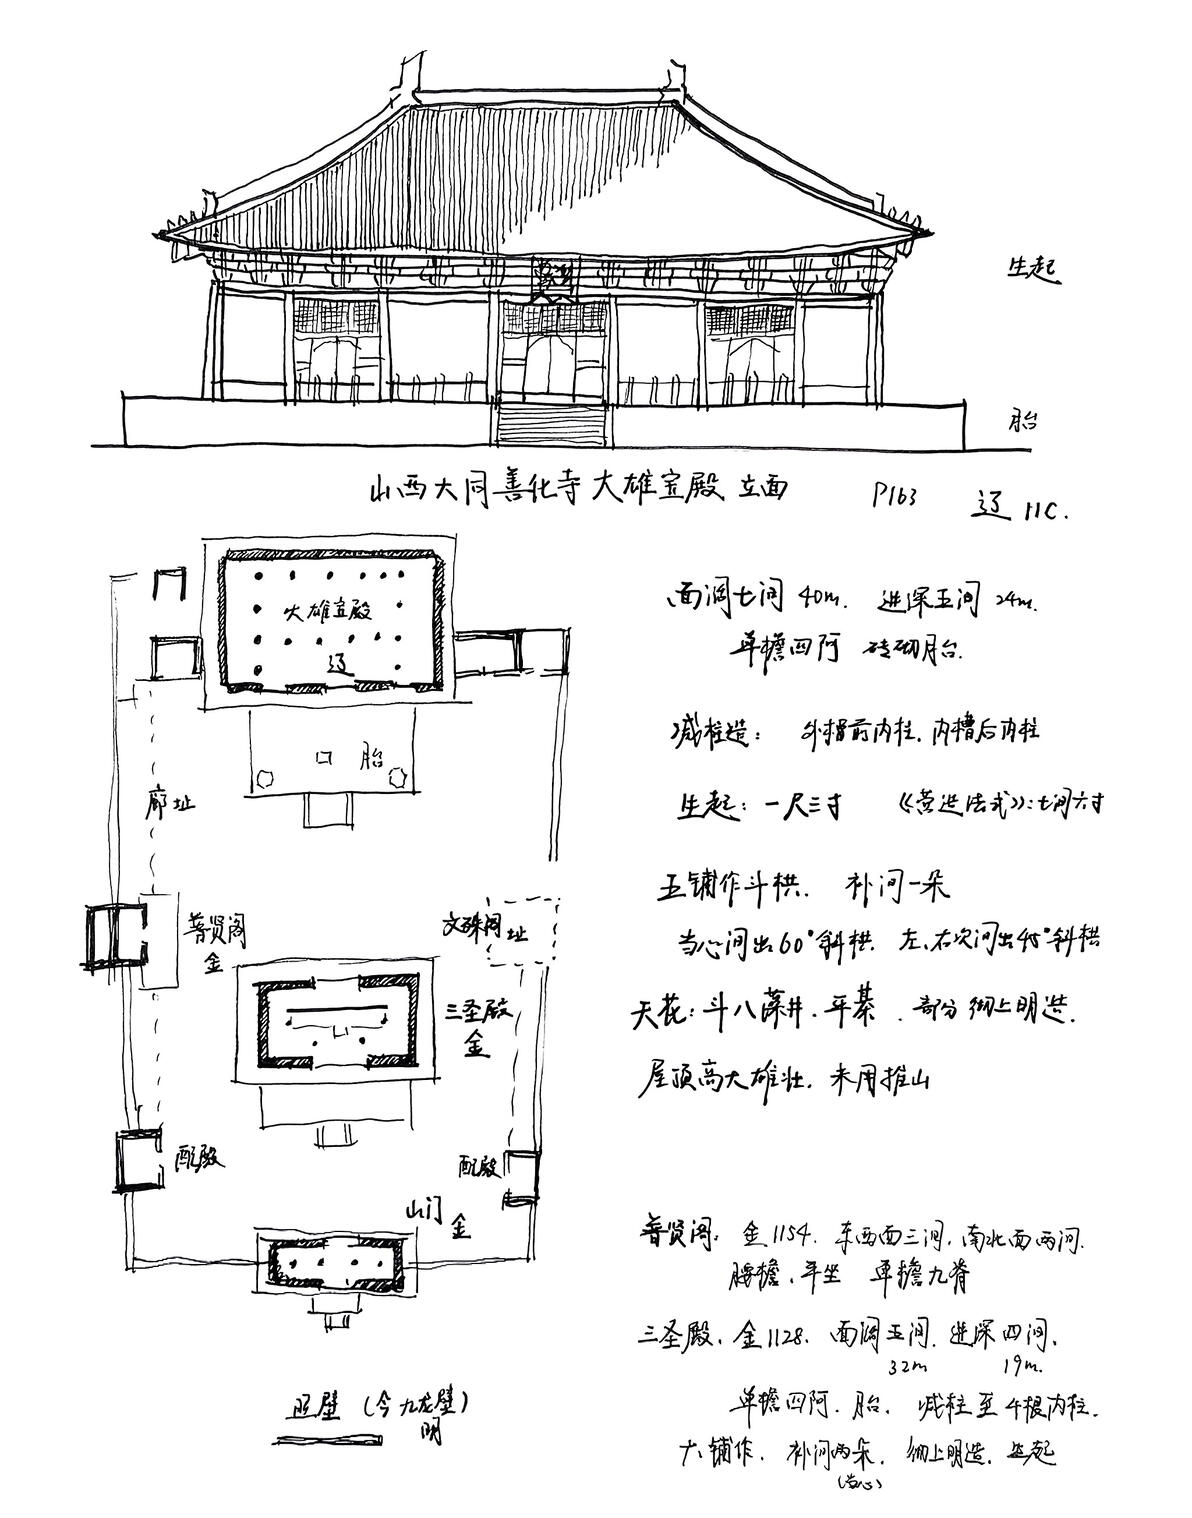 生起
月台
山西大同善化寺大雄宝殿 立面 P163 辽 11C.
大雄宝殿
辽
月台
廊址
普贤阁
金
文殊阁址
三圣殿
金
配殿
配殿
山门
金
照壁（今九龙壁）
明
面阔七间 40m. 进深五间 24m.
单檐四阿 砖砌月台.
减柱造： 外槽前内柱. 内槽后内柱
生起：一尺三寸 《营造法式》：七间六寸
五铺作斗栱. 补间一朵
当心间出60°斜栱. 左.右次间出45°斜栱
天花：斗八藻井.平棊. 部分彻上明造.
屋顶高大雄壮. 未用推山
普贤阁. 金1154. 东西面三间.南北面两间.
腰檐.平坐 单檐九脊
三圣殿. 金1128. 面阔五间. 进深四间.
32m 19m.
单檐四阿. 月台. 减柱至4根内柱.
六铺作. 补间两朵. 彻上明造. 生起
（当心）